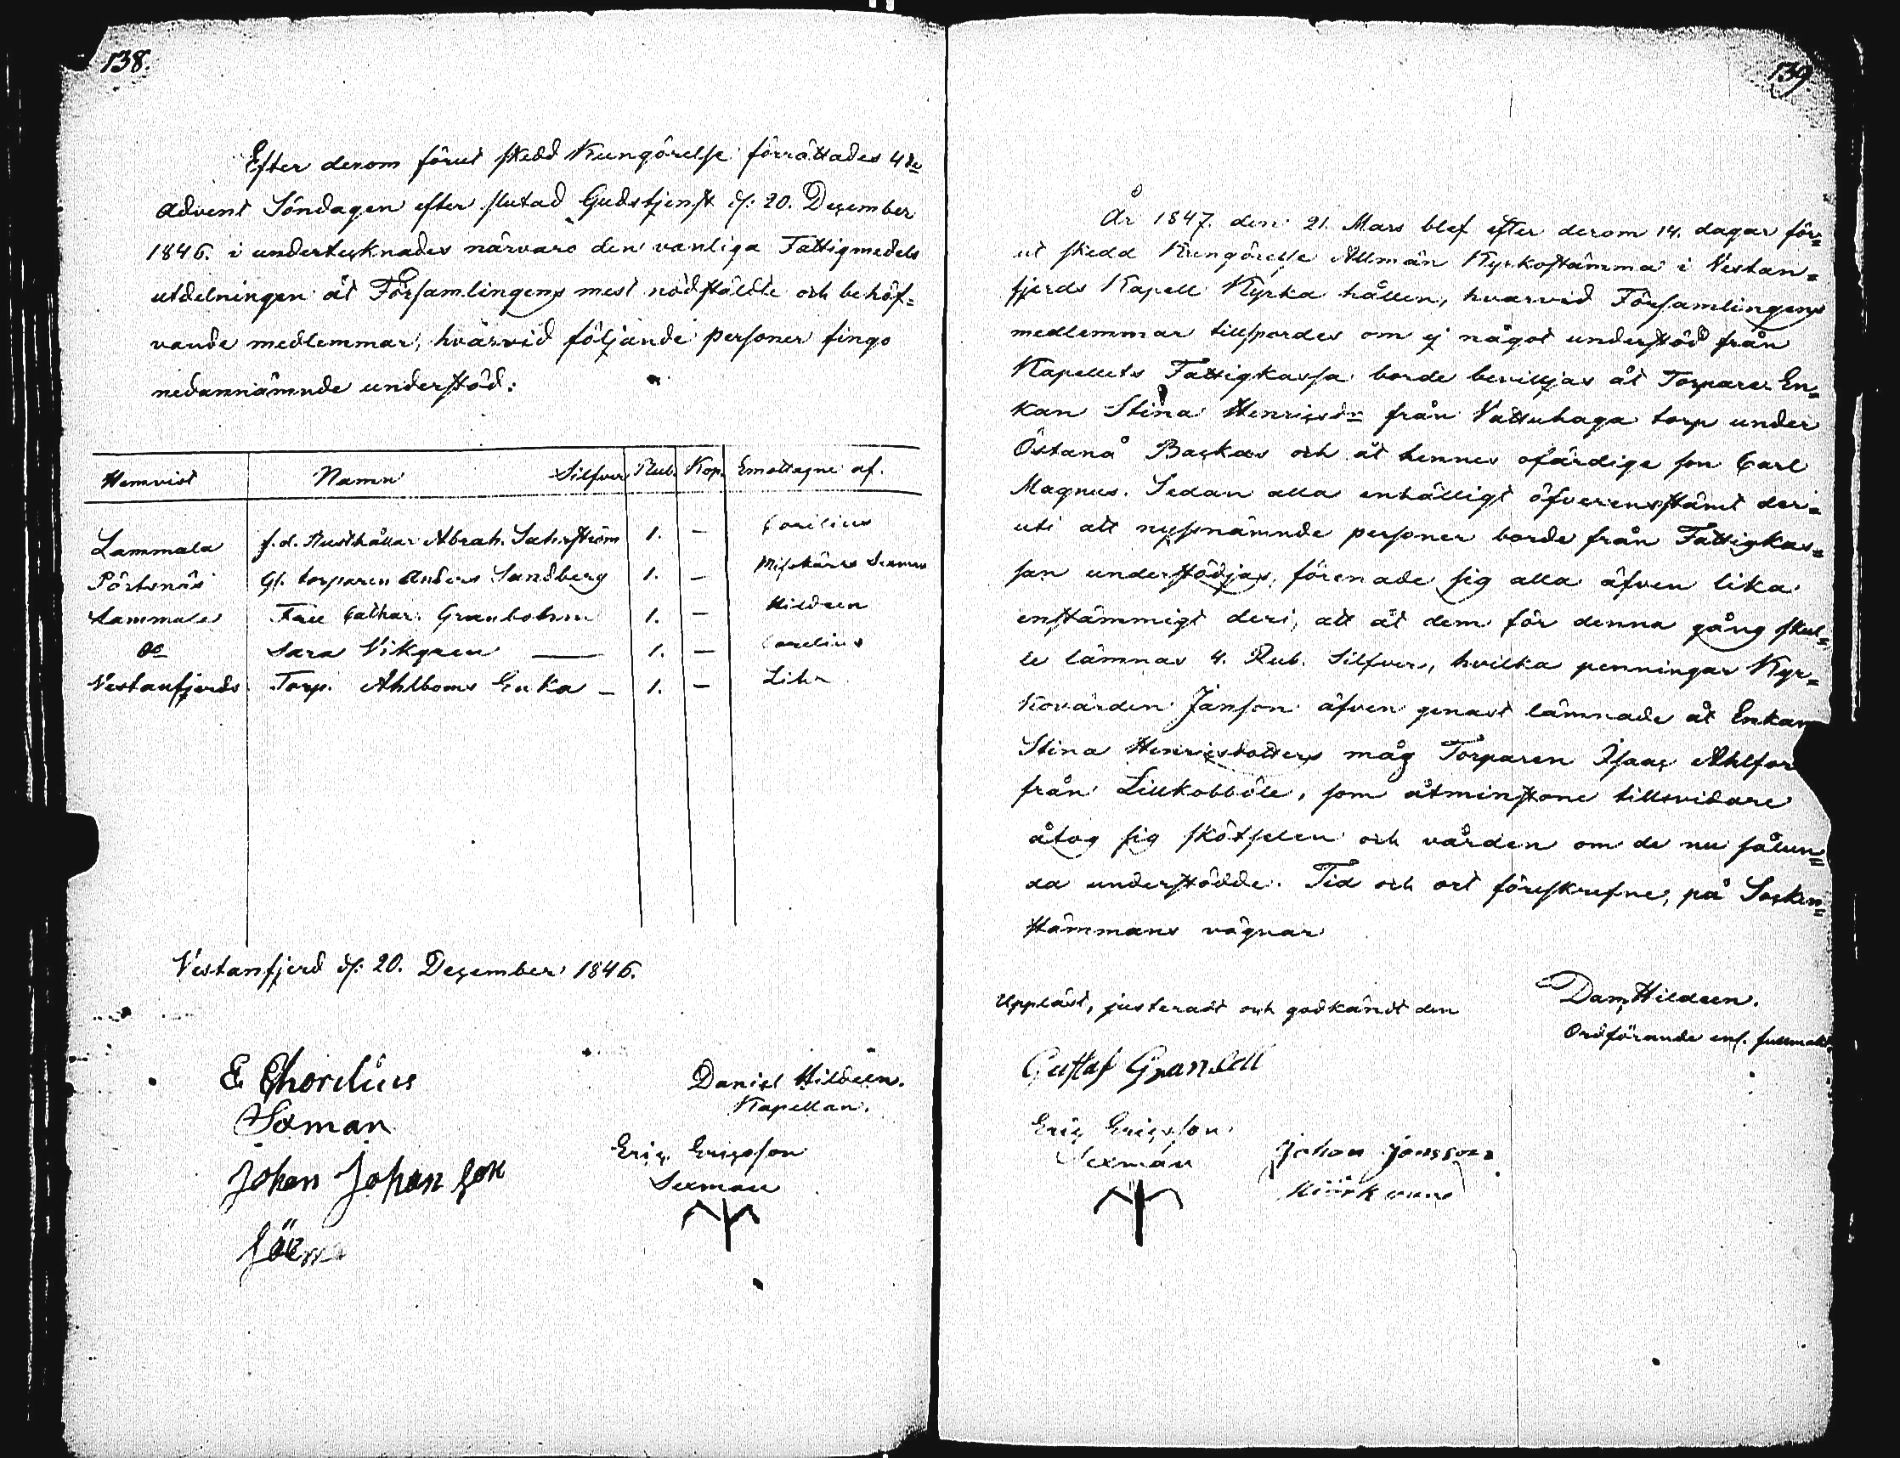 138.
Efter derom förut skedd Kungörelse förrättades 4de
Advent Söndagen efter slutad Gudstjenst d: 20. December
1846. i undertecknades närvaro den vanliga Fattigmedels
utdelningen åt Församlingens mest nödstäldte och behöf=
vande medlemmar, hvarvid följande personer fingo
nedannämnde understöd:
Hemvist Namn Silfver Rub. Kop. Emottagne af.
Lammala f.d. Rusthållar Abrah. 1. — Corelius
Pörtsnäs Gl. torparen Anders Sandberg 1. —
Lammala Cathar. Granholm 1. — Hildeen
do Sara Vikgren — 1. — Corelius
Vestanfjerds Torp. Ahlboms Enka — 1. —
Vestanfjerd d: 20. December 1846.
E Chorelius
Sexman
Johan Johan son
Daniel Hildeen.
Kapellan.
Eric Ericsson
Sexman
139.
År 1847. den 21. Mars blef efter derom 14. dagar för=
ut skedd Kungörelse Allmän Kyrkostämma i Vestan=
fjerds Kapell Kyrka hållen, hvarvid Församlingens
medlemmar tillspordes om ej något understöd från
Kapellets Fattigkassa borde beviljas åt Torpare En=
kan Stina Henricsdr från Vattuhaga torp under
Östanå Backas och åt hennes ofärdige son Carl
Magnus. Sedan alla enhälligt öfverensstämt der=
uti att nyssnämnde personer borde från Fattigkas=
san understödjas, förenade sig alla äfven lika
enstämmigt deri, att åt dem för denna gång skul=
le lämnas 4. Rub. Silfver, hvilka penningar Kyr=
kovärden Janson äfven genast lämnade åt Enkan
Stina Henricsdotters måg Torparen Isaac Ahlfor
från Lillkobböle, som åtminstone tillsvidare
åtog sig skötselen och vården om de nu sålun=
da understödde. Tid och ort föreskrefne, på Socken=
stämmans vägnar
Dan. Hildeen.
Ordförande enl. fullmakt.
Uppläst, justeradt och godkändt den
Gustaf Granstedt
Eric Ericsson
Sexman
Johan Jansson